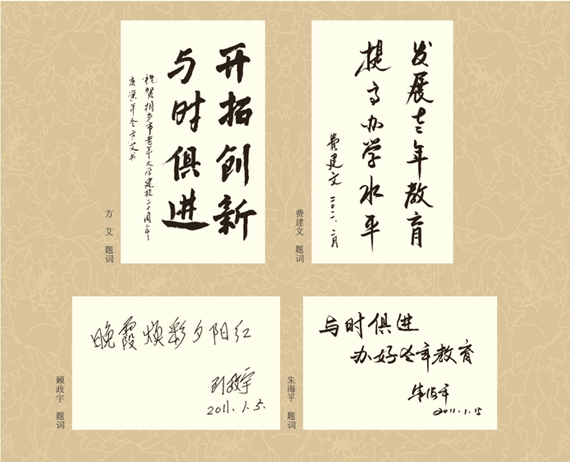 开拓创新
与时俱进
祝贺桐乡市老年大学建校二十周年
庚寅年冬方艾书
方艾 题词
发展老年教育
提高办学水平
费建文
费建文 题词
晚霞焕彩夕阳红
顾政宇
2011.1.5.
顾政宇 题词
与时俱进
办好老年教育
朱海平
2011.1.15
朱海平 题词